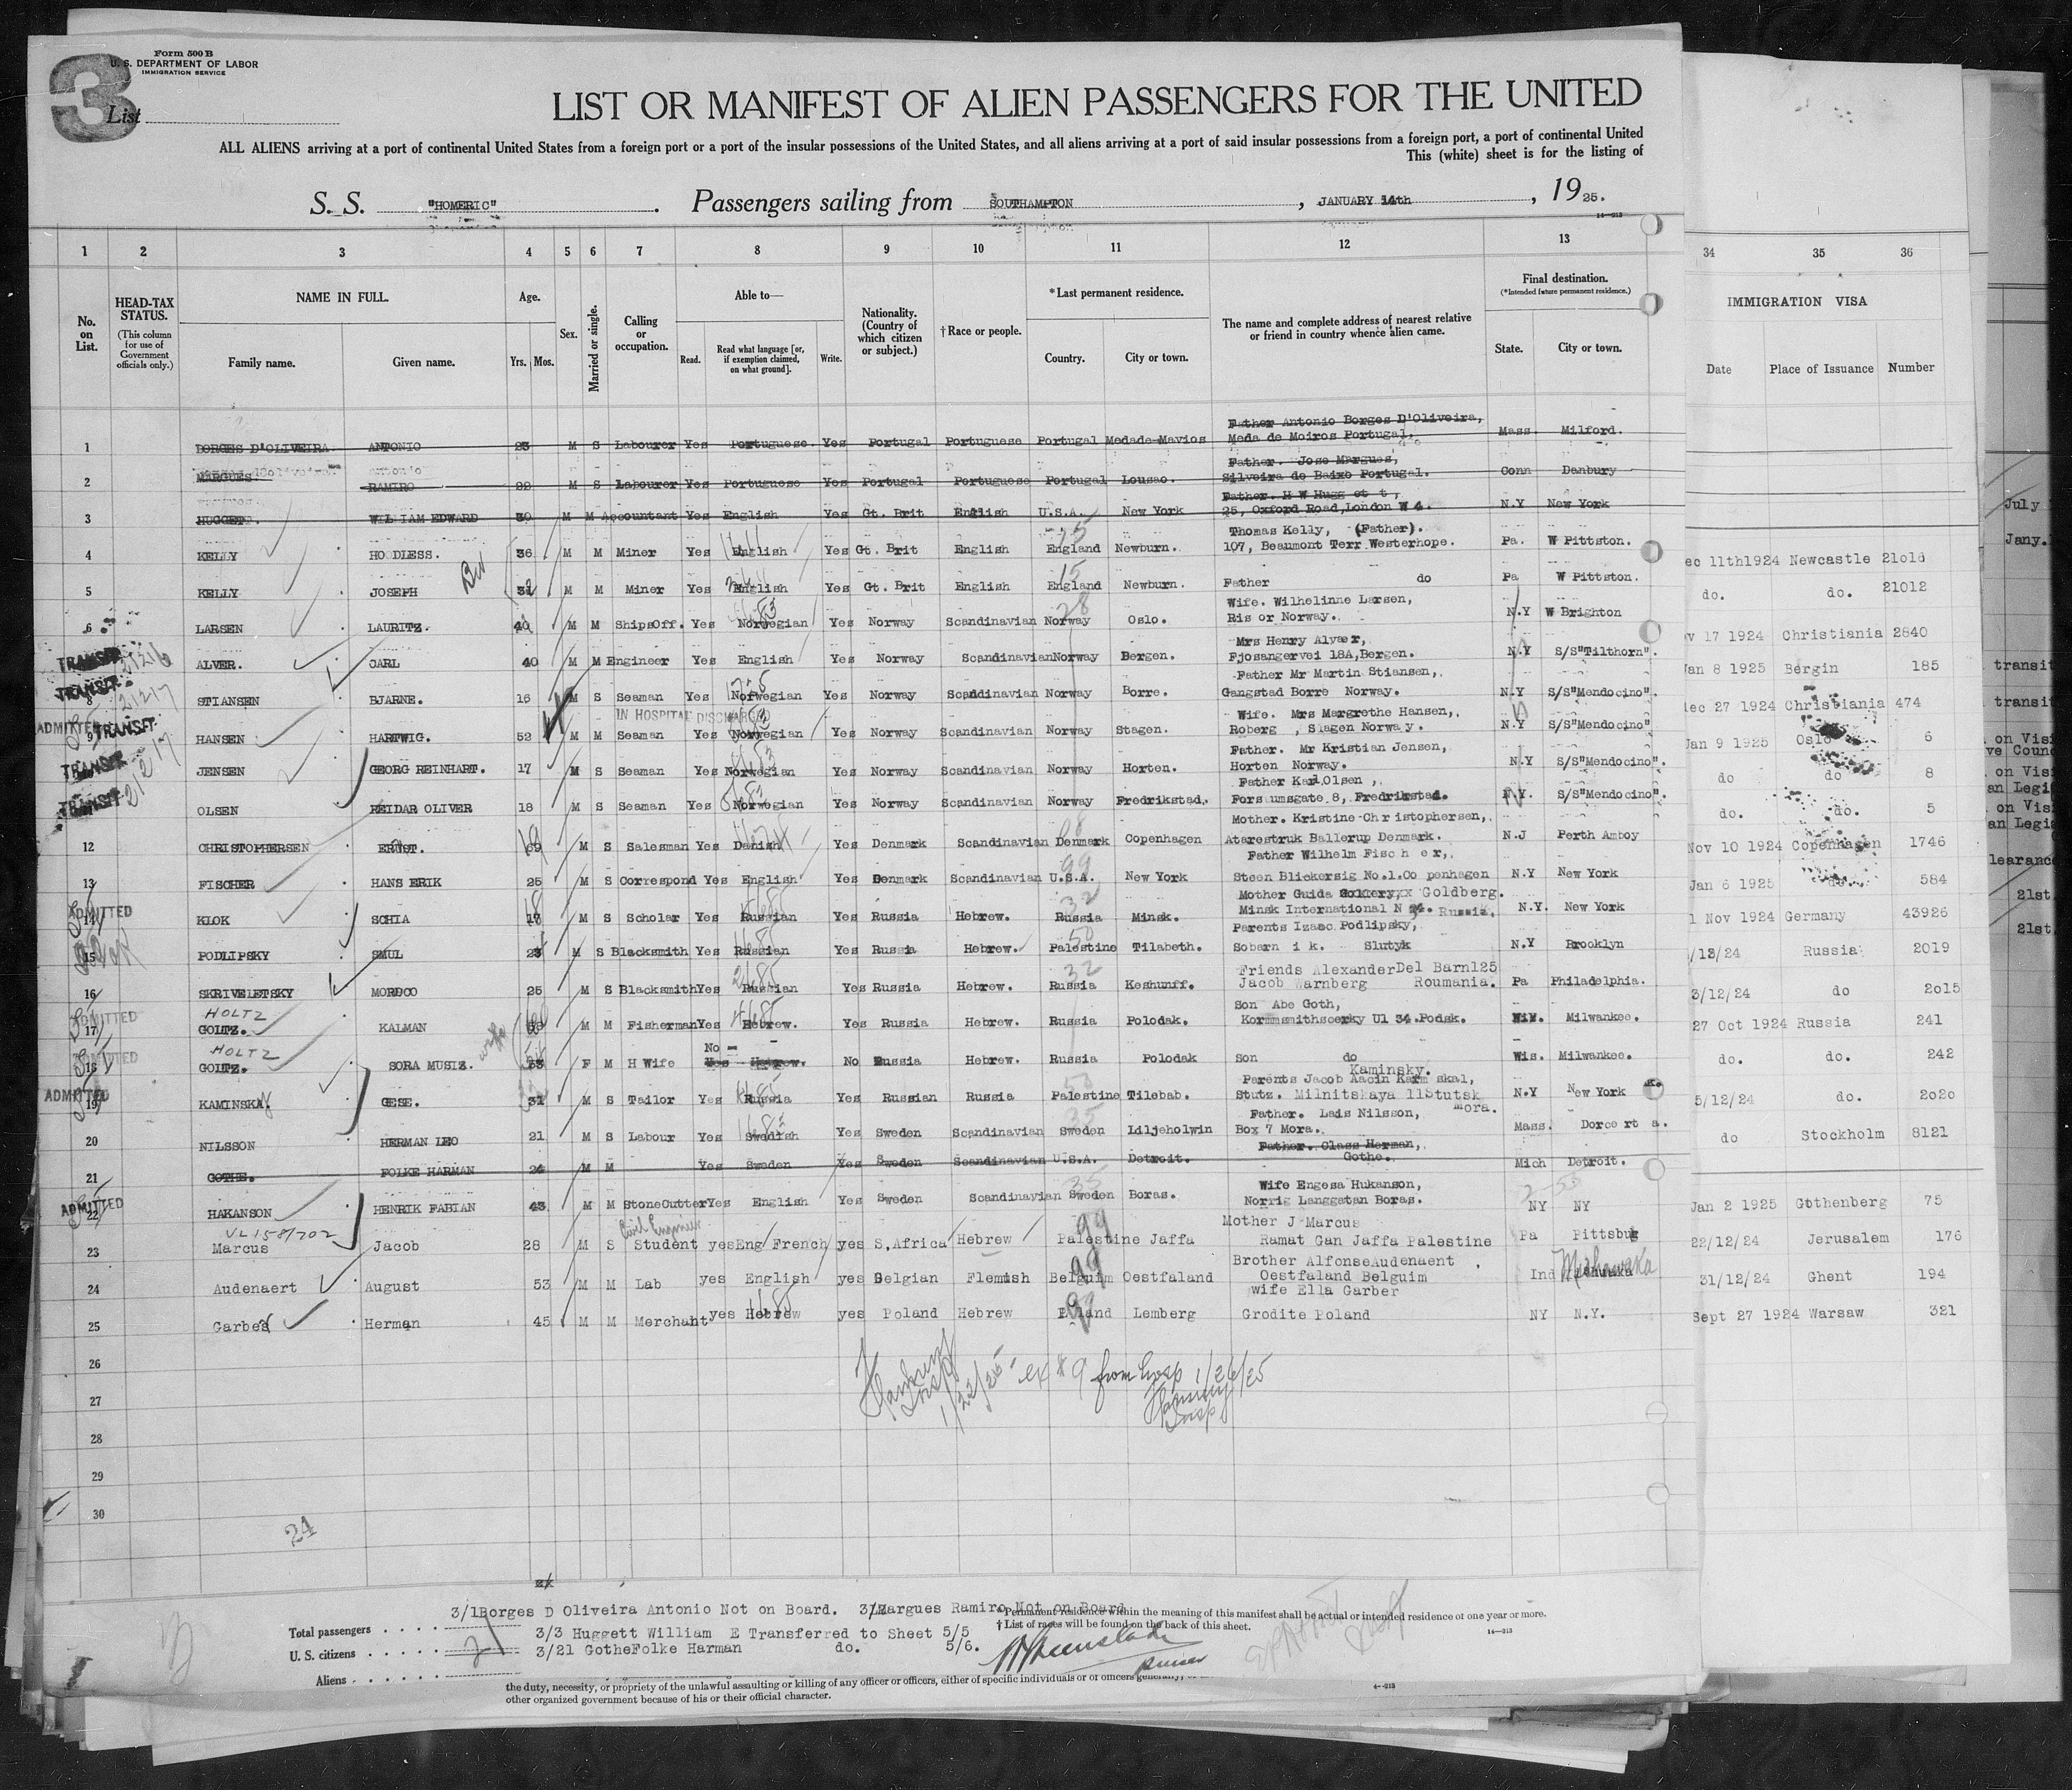 3
Form 500 B
U. S. DEPARTMENT OF LABOR
IMMIGRATION SERVICE
List
LIST OR MANIFEST OF ALIEN PASSENGERS FOR THE UNITED
ALL ALIENS arriving at a port of continental United States from a foreign port or a port of the insular possessions of the United States, and all aliens arriving at a port of said insular possessions from a foreign port, a port of continental United
This (white) sheet is for the listing of
S. S. "HOMERIC" . Passengers sailing from SOUTHAMPTON , JANUARY 14th , 1925.
1 2 3 4 5 6 7 8 9 10 11 12 13 34 35 36
No. on List. HEAD-TAX STATUS. (This column for use of Government officials only.) NAME IN FULL. Family name. Given name. Age. Yrs. Mos. Sex. Married or single. Calling or occupation. Able to— Read. Read what language [or, if exemption claimed, on what ground]. Write. Nationality. (Country of which citizen or subject.) †Race or people. *Last permanent residence. Country. City or town. The name and complete address of nearest relative or friend in country whence alien came. Final destination. (*Intended future permanent residence.) State. City or town.
IMMIGRATION VISA
Date Place of Issuance Number
Father Antonio Borges D'Oliveira,
1 BORGES D'OLIVEIRA. ANTONIO 23 M S Labourer Yes Portuguese. Yes Portugal Portuguese Portugal Medade-Mavios Meda de Moiros Portugal, Mass. Milford.
Father. Jose Margues,
2 MARGUES. RAMIRO 22 M S Labourer Yes Portuguese Yes Portugal Portuguese Portugal Lousao. Silveira de Baixo Portugal. Conn Danbury
Father. H W Hugg et t,
3 HUGGETT. WILLIAM EDWARD 30 M M Accountant Yes English Yes Gt. Brit English U.S.A. New York 25, Oxford Road, London W 4. N.Y New York
Thomas Kelly, (Father).
4 KELLY HOODLESS. 36 M M Miner Yes English Yes Gt. Brit English England Newburn. 107, Beaumont Terr Westerhope. Pa. W Pittston. ec 11th1924 Newcastle 21018
5 KELLY JOSEPH M M Miner Yes English Yes Gt. Brit English England Newburn. Father do Pa W Pittston. do. do. 21012
Wife. Wilhelinne Larsen,
6 LARSEN LAURITZ. 40 M M ShipsOff. Yes Norwegian Yes Norway Scandinavian Norway Oslo. Ris or Norway. N.Y W Brighton v 17 1924 Christiania 2840
Mrs Henry Alvær,
TRANSIT ALVER. CARL 40 M M Engineer Yes English Yes Norway Scandinavian Norway Bergen. Fjosangervei 18A, Bergen. N.Y S/S"Tilthorn". an 8 1925 Bergin 185
Father Mr Martin Stiansen,
TRANSIT 8 STIANSEN BJARNE. 16 M S Seaman Yes Norwegian Yes Norway Scandinavian Norway Borre. Gangstad Borre Norway. N.Y S/S"Mendocino". ec 27 1924 Christiania 474
IN HOSPITAL DISCHARGED
Wife. Mrs Margrethe Hansen,
ADMITTED TRANSIT 9 HANSEN HARTWIG. 52 M M Seaman Yes Norwegian Yes Norway Scandinavian Norway Stagen. Roberg , Slagen Norway. N.Y S/S"Mendocino" an 9 1925 Oslo 6
Father. Mr Kristian Jensen,
TRANSIT JENSEN GEORG REINHART. 17 M S Seaman Yes Norwegian Yes Norway Scandinavian Norway Horten. Horten Norway. N.Y S/S"Mendocino". do do 8
Father Karl Olsen,
TRANSIT OLSEN REIDAR OLIVER 18 M S Seaman Yes Norwegian Yes Norway Scandinavian Norway Fredrikstad. Forsumsgate 8, Fredrikstad. N.Y. S/S"Mendocino". do. do. 5
Mother. Kristine Christophersen,
12 CHRISTOPHERSEN ERNST. M S Salesman Yes Danish Yes Denmark Scandinavian Denmark Copenhagen Atarestruk Ballerup Denmark. N.J Perth Amboy Nov 10 1924 Copenhagen 1746
Father Wilhelm Fisch er,
13 FISCHER HANS ERIK 25 M S Correspond Yes English Yes Denmark Scandinavian U.S.A. New York Steen Blickersig No.1.Co penhagen N.Y New York Jan 6 1925 do. 584
Mother Guida Goldberg.
ADMITTED 14 KLOK SCHIA M S Scholar Yes Russian Yes Russia Hebrew. Russia Minsk. Minsk International N 24. Russia. N.Y. New York 1 Nov 1924 Germany 43926
Parents Izaac Podlipsky,
15 PODLIPSKY SMUL M S Blacksmith Yes Russian Yes Russia Hebrew. Palestine Tilabeth. Sobarn i k. Slutyk N.Y Brooklyn /13/24 Russia 2019
Friends AlexanderDel Barn125
16 SKRIVELETSKY MORDCO 25 M S Blacksmith Yes Russian Yes Russia Hebrew. Russia Keshunff. Jacob Warnberg Roumania. Pa Philadelphia. 3/12/24 do 2015
HOLTZ Son Abe Goth,
ADMITTED 17 GOLTZ. KALMAN M M Fisherman Yes Hebrew. Yes Russia Hebrew. Russia Polodak. Kormmsmithsoerky Ul 34.Podsk. Milwankee. 27 Oct 1924 Russia 241
HOLTZ No –
ADMITTED 18 GOLTZ. SORA MUSIZ. wife F M H Wife Yes Hebrew. No Russia Hebrew. Russia Polodak Son do Wis. Milwankee. do. do. 242
Kaminsky.
Parents Jacob Aacin Karm skal,
ADMITTED 19 KAMINSKA GESE. 31 M S Tailor Yes Russia Yes Russian Russia Palestine Tilebab. Stutz. Milnitskaya 11Stutsk N.Y New York 5/12/24 do. 2020
Father. Lais Nilsson, Mora.
20 NILSSON HERMAN LEO 21 M S Labour Yes Swedish Yes Sweden Scandinavian Sweden Liljeholwin Box 7 Mora. Mass. Dorce rt a. do Stockholm 8121
Father. Class Herman,
21 GOTHE. FOLKE HARMAN 24 M M Yes Sweden Yes Sweden Scandinavian U.S.A. Detroit. Gothe. Mich Detroit.
Wife Engesa Hukanson,
ADMITTED 22 HAKANSON HENRIK FABIAN 43 M M StoneCutter Yes English Yes Sweden Scandinavian Sweden Boras. Norrig Langgatan Boras. NY NY Jan 2 1925 Gothenberg 75
VL 158/702 Civil Engineer Mother J Marcus
23 Marcus Jacob 28 M S Student yes Eng/French yes S.Africa Hebrew Palestine Jaffa Ramat Gan Jaffa Palestine Pa Pittsbug 22/12/24 Jerusalem 176
Brother AlfonseAudenaent
24 Audenaert August 53 M M Lab yes English yes Belgian Flemish Belguim Oestfaland Oestfaland Belguim Ind Mishawaka 31/12/24 Ghent 194
wife Ella Garber
25 Garber Herman 45 M M Merchant yes Hebrew yes Poland Hebrew Poland Lemberg Grodite Poland NY N.Y. Sept 27 1924 Warsaw 321
26
27
28
29
30
1/22/25 ex #9 from hosp 1/26/25
Insp
July
Jany.
transit
transit
on Vis
learance
21st
21st
3/1Borges D Oliveira Antonio Not on Board. 3/2Margues Ramiro Not on Board
3/3 Huggett William E Transferred to Sheet 5/5
3/21 GotheFolke Harman do. 5/6.
Total passengers
U. S. citizens
Aliens
21
* Permanent residence within the meaning of this manifest shall be actual or intended residence of one year or more.
† List of races will be found on the back of this sheet.
Purser
14—213
the duty, necessity, or propriety of the unlawful assaulting or killing of any officer or officers, either of specific individuals or of officers generally,
other organized government because of his or their official character.